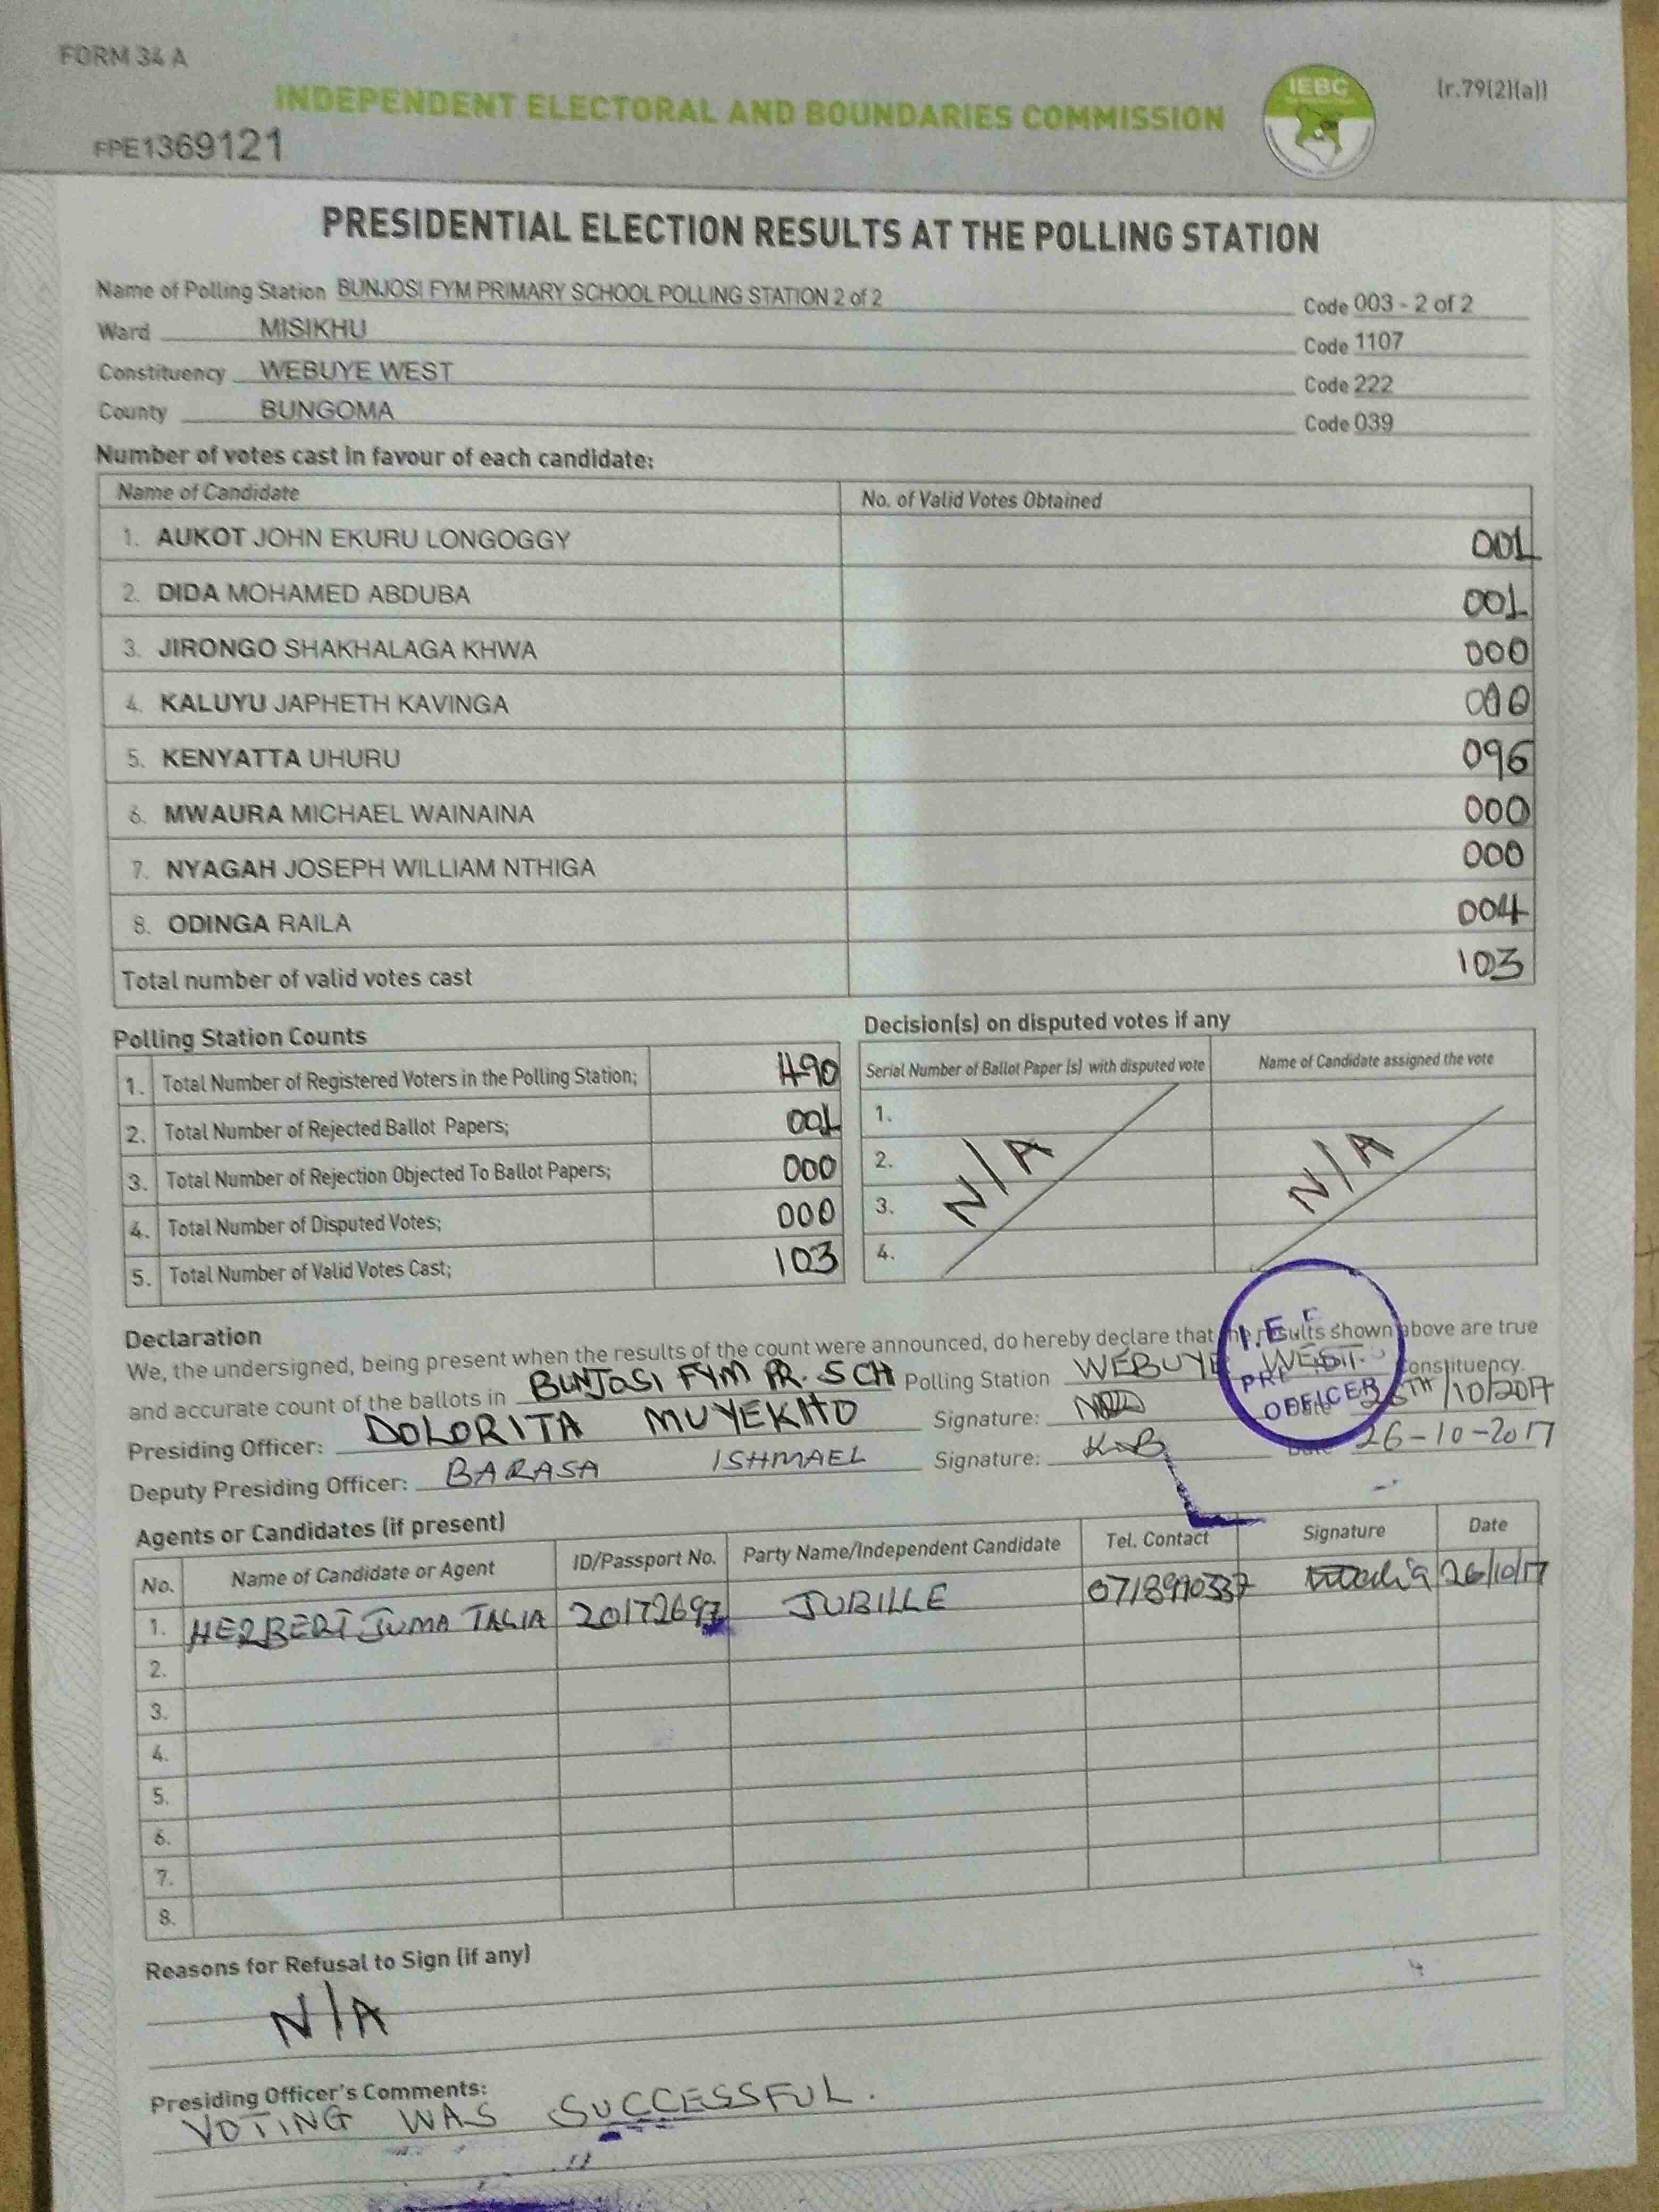 FORM 34 A
INDEPENDENT ELECTORAL AND BOUNDARIES COMMISSION
IEBC
(r.79(2)(a))
FPE1369121
PRESIDENTIAL ELECTION RESULTS AT THE POLLING STATION
Name of Polling Station BUNJOSI FYM PRIMARY SCHOOL POLLING STATION 2 of 2 Code 003 - 2 of 2
Ward MISIKHU Code 1107
Constituency WEBUYE WEST Code 222
County BUNGOMA Code 039
Number of votes cast in favour of each candidate:
Name of Candidate No. of Valid Votes Obtained
1. AUKOT JOHN EKURU LONGOGGY 001
2. DIDA MOHAMED ABDUBA 001
3. JIRONGO SHAKHALAGA KHWA 000
4. KALUYU JAPHETH KAVINGA
5. KENYATTA UHURU 096
6. MWAURA MICHAEL WAINAINA 000
7. NYAGAH JOSEPH WILLIAM NTHIGA 000
8. ODINGA RAILA 004
Total number of valid votes cast 103
Polling Station Counts
1. Total Number of Registered Voters in the Polling Station; 490
2. Total Number of Rejected Ballot Papers; 001
3. Total Number of Rejection Objected To Ballot Papers; 000
4. Total Number of Disputed Votes; 000
5. Total Number of Valid Votes Cast; 103
Decision(s) on disputed votes if any
Serial Number of Ballot Paper (s) with disputed vote Name of Candidate assigned the vote
1.
2.
3.
4.
N/A N/A
Declaration
We, the undersigned, being present when the results of the count were announced, do hereby declare that the results shown above are true
and accurate count of the ballots in BUNJOSI FYM PR. SCH Polling Station WEBUYE WEST Constituency.
Presiding Officer: DOLORITA MUYEKHO Signature: Date /10/2017
Deputy Presiding Officer: BARASA ISHMAEL Signature: Date 26-10-2017
OFFICER
Agents or Candidates (if present)
No. Name of Candidate or Agent ID/Passport No. Party Name/Independent Candidate Tel. Contact Signature Date
1. HERBERT JUMA TALIA 20172697 JUBILLE 0718990337 26/10/17
2.
3.
4.
5.
6.
7.
8.
Reasons for Refusal to Sign (if any)
N/A
Presiding Officer's Comments:
VOTING WAS SUCCESSFUL.